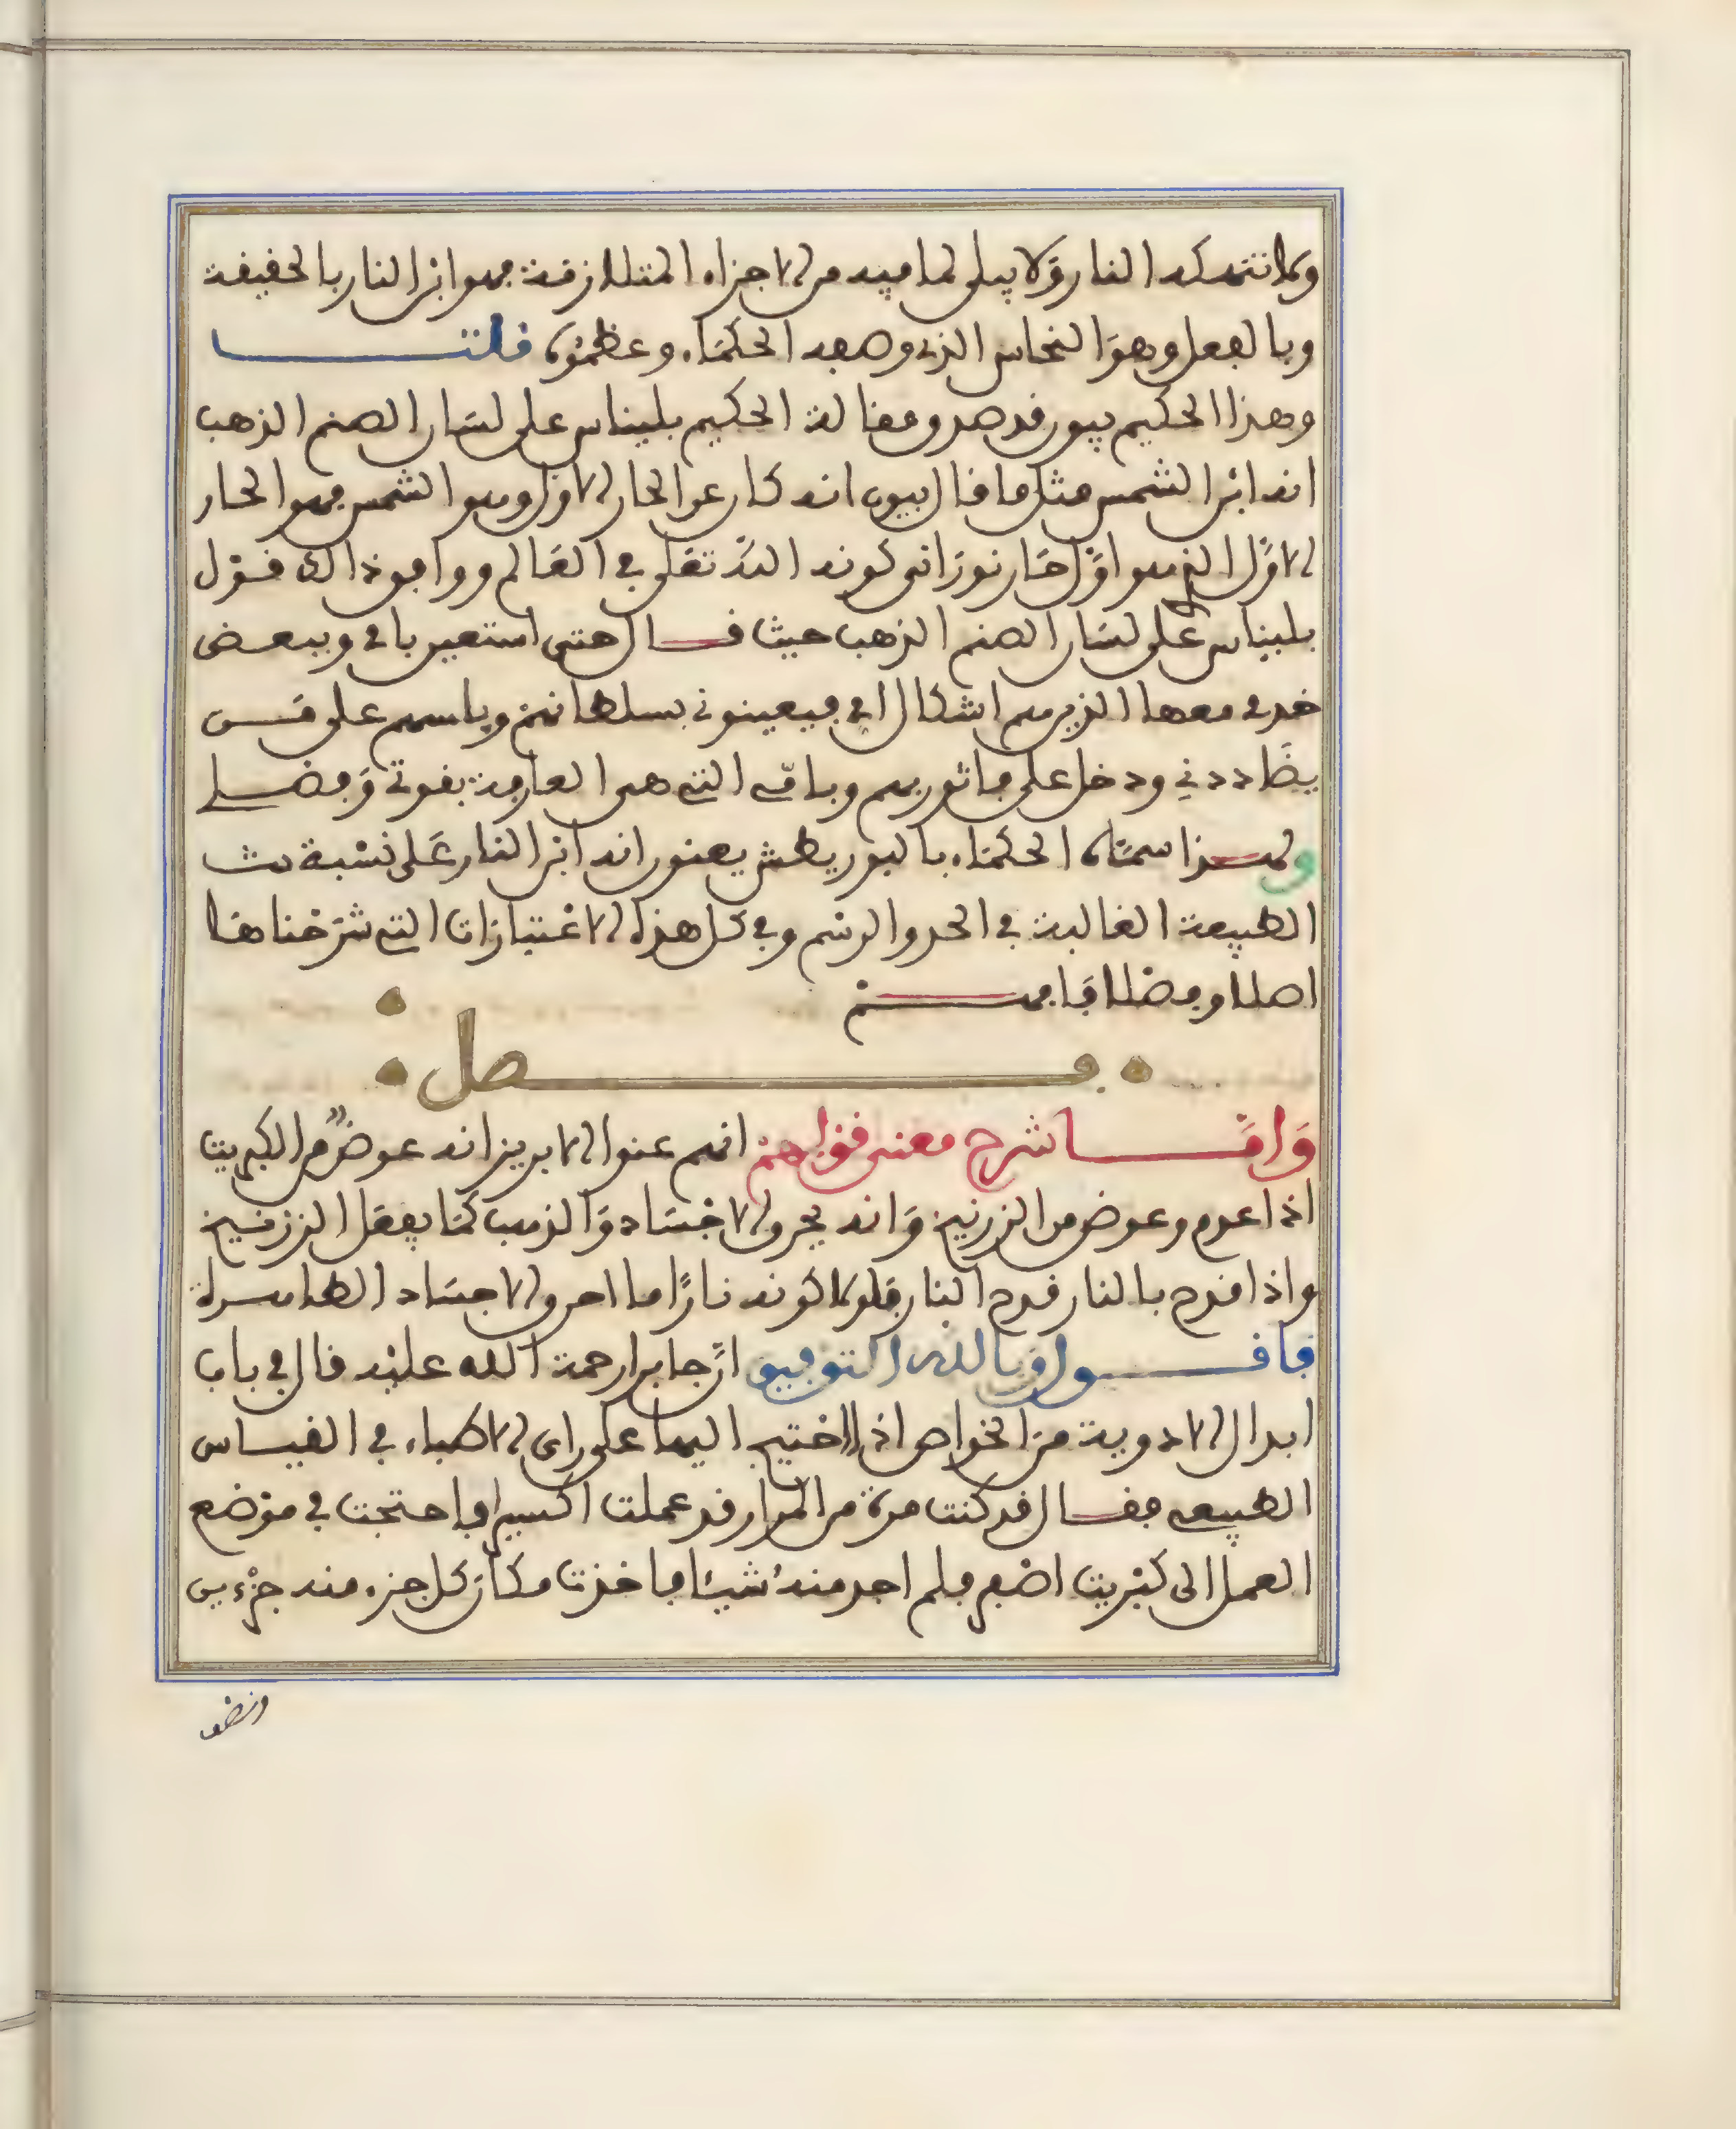 ولا تنهكه النار ولا يبلى لما فيه من الاجزاء المتلازقة فهو ابن النار بالحقيقة
وبالفعل وهو النحاس الذي وصفه الحكماء وعظموه قلت
وهذا الحكيم بيون قد صدق مقالة الحكيم بليناس على لسان الصنم الذهب
انه ابن الشمس مثل ما قال بيون انه كان عن الحار الاول وهو الشمس فهو الحار
الاول الذي هو اول حار نوراني كونه الله تعلى في العالم ووافق ذالك قول
بليناس على لسان الصنم الذهب حيث قال حتى استعين بابي وببعض
خدمي معها الذين هم اشكال ابي فيعينوني بسلطانهم وباسهم على من
يضاددني ودخل على ماثورهم وبامي التي هي العارفة بقوتي وفضلي
ولهذا سماه الحكماء بالبوريطش يعنون انه ابن النار على نسبة بث
الطبيعة الغالبة في الحد والرسم وفي كل هذه الاعتبارات التي شرحناها
اصلا وفضلا فافهم
فصل
واما شرح معنى قولهم انهم عنوا الابريز انه عوض من الكبريت
اذا عدم وعوض من الزرنيخ وانه يحرق الاجساد والذهب كما يفعل الزرنيخ
واذا قدح بالنار قدح النار فلولا كونه نارا ما احرق الاجساد الطاهرة
فاقول وبالله التوفيق ان جابرا رحمة الله عليه قال في باب
ابدال الادوية من الخواص اذا احتيج اليها على راي الاطباء في القياس
الطبيعي فقال قد كنت مرة من المرار قد عملت اكسيرا فاحتجت في موضع
العمل الى كبريت اصفر فلم اجد منه شيئا فاخذت مكان كل جزء منه جزءين